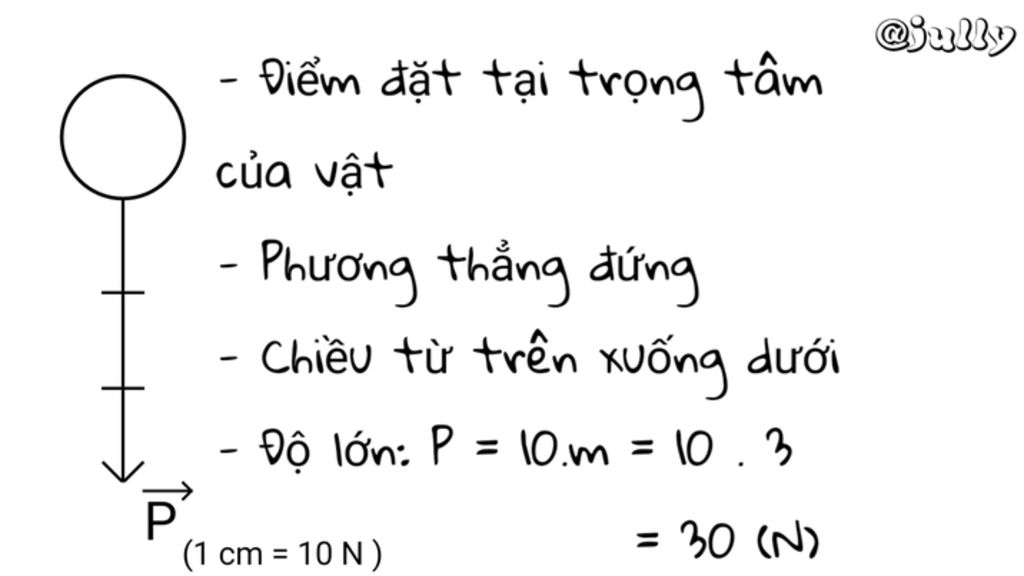 @jully
- Điểm đặt tại trọng tâm
của vật
- Phương thẳng đứng
- Chiều từ trên xuống dưới
- Độ lớn: P = 10.m = 10 . 3
= 30 (N)
P
(1 cm = 10 N )